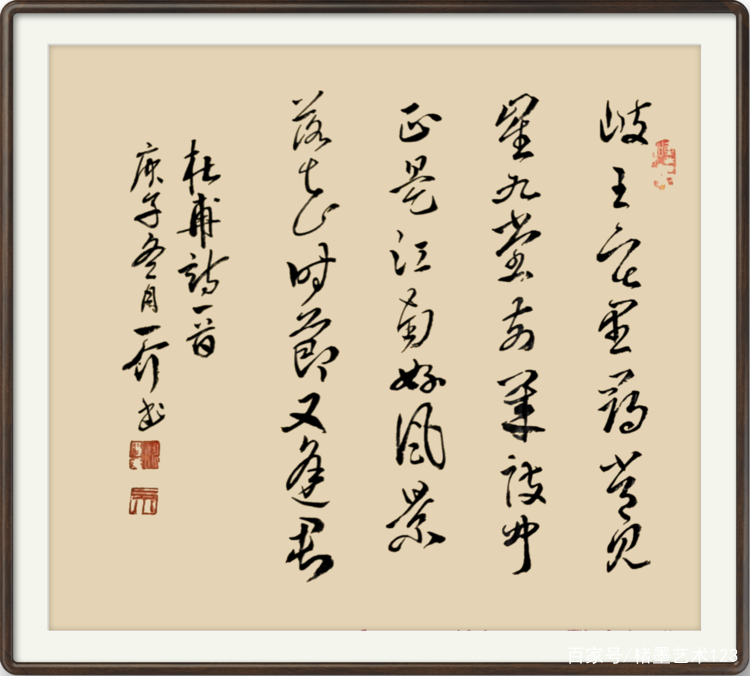 岐王宅里尋常見
崔九堂前幾度聞
正是江南好風景
落花时節又逢君
杜甫詩一首
庚子冬月一书
百家号/楮墨艺术123